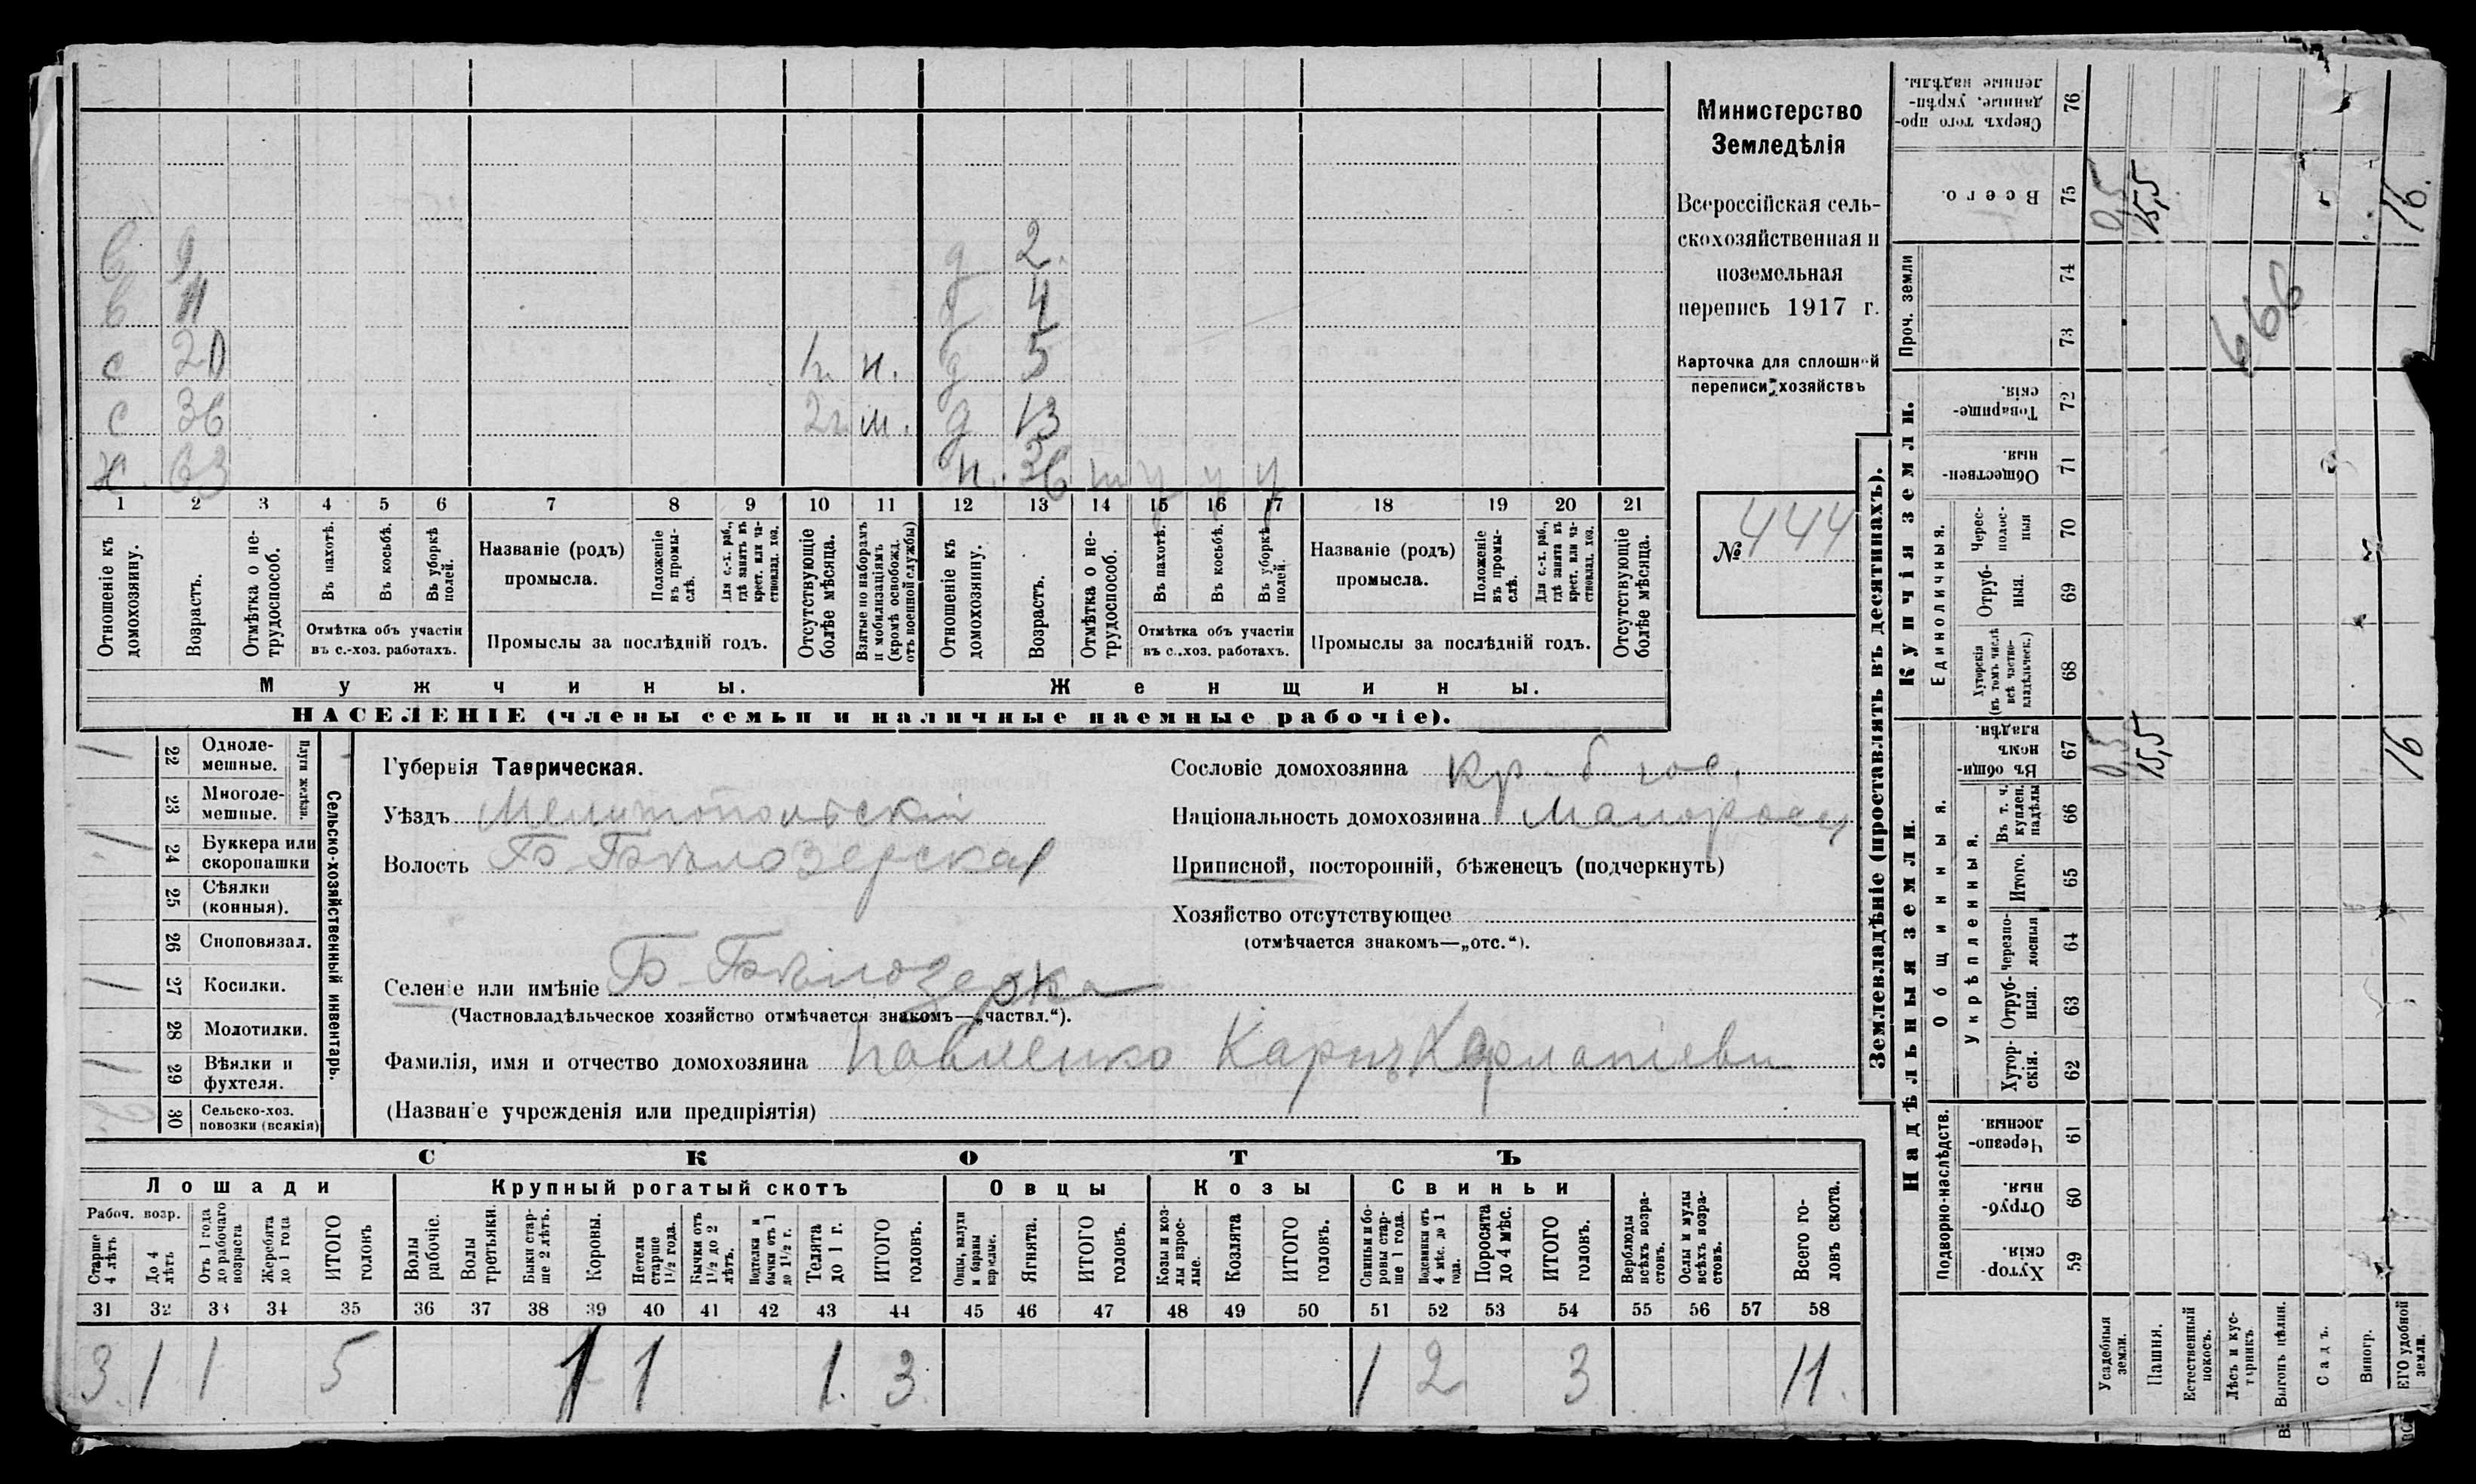 Министерство
Земледѣлія
Всероссійская сель-
скохозяйственная и
поземельная
перепись 1917 г.
Карточка для сплошной
переписи хозяйствъ
№ 444
в 9 д 2.
в 11 д 4
с 20 1 г. н. д 5
с 36 2 г. м. д 13
х. 63 н. 36
1 2 3 4 5 6 7 8 9 10 11 12 13 14 15 16 17 18 19 20 21
Отношеніе къ домохозяину.
Возрастъ.
Отмѣтка о не-трудоспособ.
Въ пахотѣ.
Въ косьбѣ.
Въ уборкѣ полей.
Отмѣтка объ участіи
въ с.-хоз. работахъ.
Названіе (родъ)
промысла.
Положеніе въ промы-слѣ.
Для с.-х. раб., гдѣ занятъ въ крест. или ча-стновлад. хоз.
Промыслы за послѣдній годъ.
Отсутствующіе болѣе мѣсяца.
Взятые по наборамъ и мобилизаціямъ (кромѣ освобожд. отъ военной службы)
Отношеніе къ домохозяину.
Возрастъ.
Отмѣтка о не-трудоспособ.
Въ пахотѣ.
Въ косьбѣ.
Въ уборкѣ полей.
Отмѣтка объ участіи
въ с.-хоз. работахъ.
Названіе (родъ)
промысла.
Положеніе въ промы-слѣ.
Для с.-х. раб., гдѣ занята въ крест. или ча-стновлад. хоз.
Промыслы за послѣдній годъ.
Отсутствующіе болѣе мѣсяца.
Мужчины. Женщины.
НАСЕЛЕНІЕ (члены семьи и наличные наемные рабочіе).
Сельско-хозяйственный инвентарь.
Плуги желѣзн.
22 Одноле-мешные. 1
23 Многоле-мешные.
24 Буккера или скоропашки 1
25 Сѣялки (конныя).
26 Сноповязал.
27 Косилки. 1
28 Молотилки.
29 Вѣялки и фухтеля. 1
30 Сельско-хоз. повозки (всякія) 2
Губернія Таврическая.
Уѣздъ Мелитопольскій
Волость Б-Бѣлозерская
Селеніе или имѣніе Б-Бѣлозерка
(Частновладѣльческое хозяйство отмѣчается знакомъ—„частвл.“).
Фамилія, имя и отчество домохозяина Павленко Карпъ Харлапіеви
(Названіе учрежденія или предпріятія)
Сословіе домохозяина кр-б. гос.
Національность домохозяина Малоросс
Приписной, посторонній, бѣженецъ (подчеркнуть)
Хозяйство отсутствующее
(отмѣчается знакомъ—„отс.“).
СКОТЪ
Лошади Крупный рогатый скотъ Овцы Козы Свиньи
Рабоч. возр.
Старше 4 лѣтъ
До 4 лѣтъ
Отъ 1 года до рабочаго возраста
Жеребята до 1 года
ИТОГО головъ
Волы рабочіе.
Волы третьяки.
Быки стар-ше 2 лѣтъ.
Коровы.
Нетели старше 1½ года.
Бычки отъ 1½ до 2 лѣтъ.
Подтелки и бычки отъ 1 до 1½ г.
Телята до 1 г.
ИТОГО головъ.
Овцы, валухи и бараны взрослые.
Ягнята.
ИТОГО головъ.
Козы и коз-лы взрос-лые.
Козлята
ИТОГО головъ.
Свиньи и бо-ровы стар-ше 1 года.
Подсвинки отъ 4 мѣс. до 1 года.
Поросята до 4 мѣс.
ИТОГО головъ.
Верблюды всѣхъ возра-стовъ.
Ослы и мулы всѣхъ возра-стовъ.
Всего го-ловъ скота.
31 32 33 34 35 36 37 38 39 40 41 42 43 44 45 46 47 48 49 50 51 52 53 54 55 56 57 58
3. 1 1 5 1 1 1. 3. 1 2 3 11.
Землевладѣніе (проставлять въ десятинахъ).
Надѣльныя земли. Купчія земли. Проч. земли
Подворно-наслѣдств. Общинныя. Укрѣпленныя. Единоличныя.
Хутор-скія. 59
Отруб-ныя. 60
Черезпо-лосныя. 61
Хутор-скія. 62
Отруб-ныя. 63
Черезпо-лосныя 64
Итого. 65
Въ т. ч. куплен. надѣлы 66
Въ общин-номъ владѣн. 67
Хуторскія (въ томъ числѣ всѣ частно-владѣльческ.) 68
Отруб-ныя. 69
Черес-полос-ныя 70
Обществен-ныя. 71
Товарище-скія. 72
73
74
Всего. 75
Сверхъ того про-данные, укрѣп-ленные надѣлы. 76
Усадебныя земли. 0,5 0,5
Пашня. 15,5 15,5
Естественный покосъ.
Лѣсъ и кус-тарникъ.
Выгонъ цѣлин.
Садъ.
Виногр.
ЕГО удобной земли. 16 16.
666